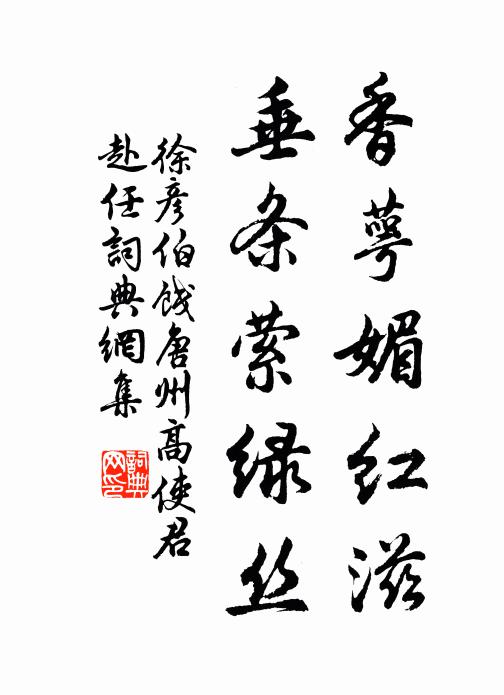 香萼媚红滋
垂条萦绿丝
徐彦伯饯唐州高使君
赴任詞典網集
詞典
网印